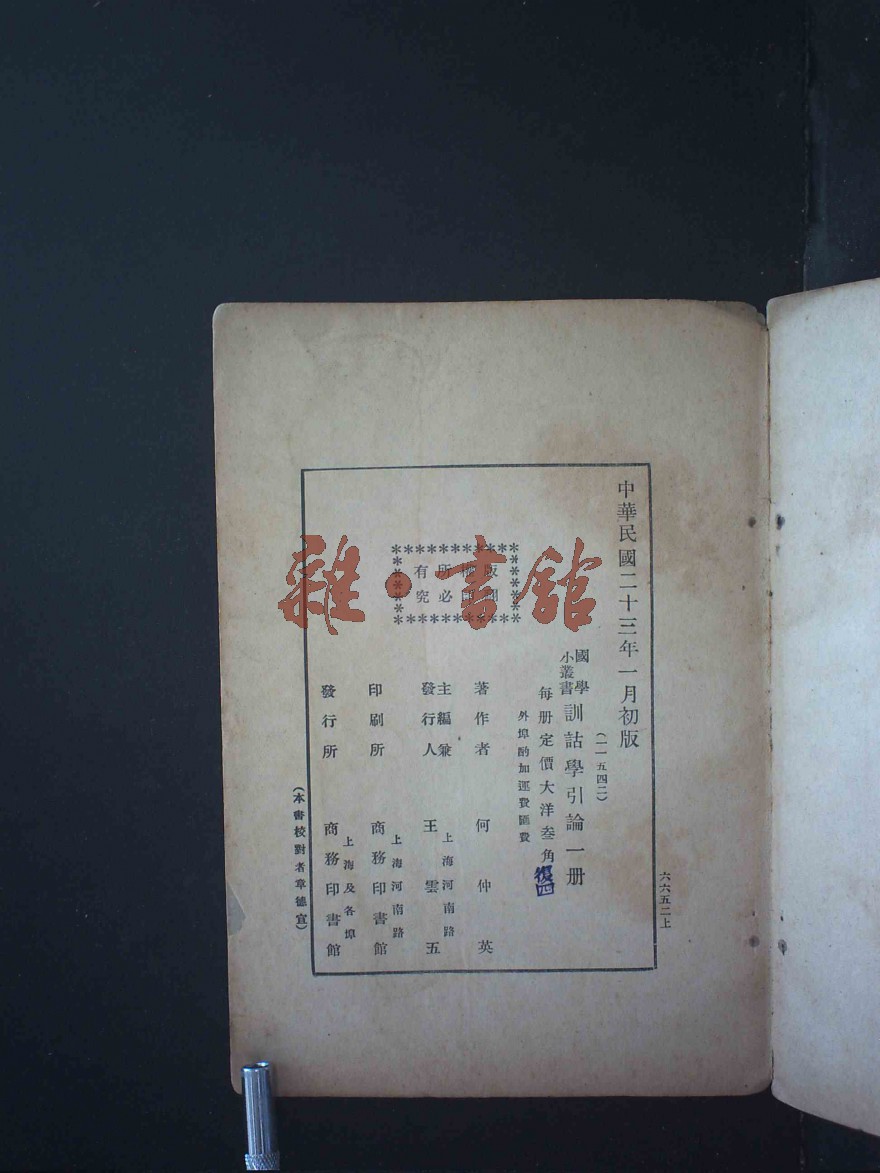 中華民國二十三年一月初版
六六五二上
(一一五四二)
國學
小叢書
訓詁學引論一册
每册定價大洋叁角
復四
外埠酌加運費匯費
版權所有
翻印必究
著作者 何仲英
主編兼
發行人
王雲五
上海河南路
印刷所
上海河南路
商務印書館
發行所
上海及各埠
商務印書館
(本書校對者章德宣)
雜·書館